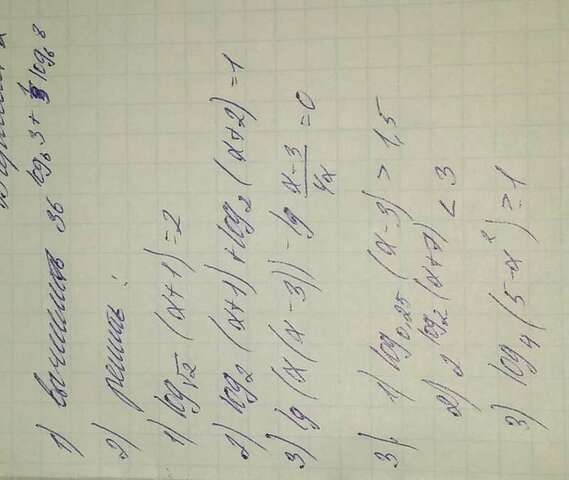 1) вычислить 36 log₆ 3 + log₆ 8
2) решить:
1) log√2 (x+1) = 2
2) log₂ (x+1) + log₂ (x+2) = 1
3) lg (x(x-3)) - lg (x-3)/(4x) = 0
3) 1) log₀,₂₅ (x-3) > 1,5
2) 2 log₂ (x+7) < 3
3) log₄ (5-x²) ≥ 1